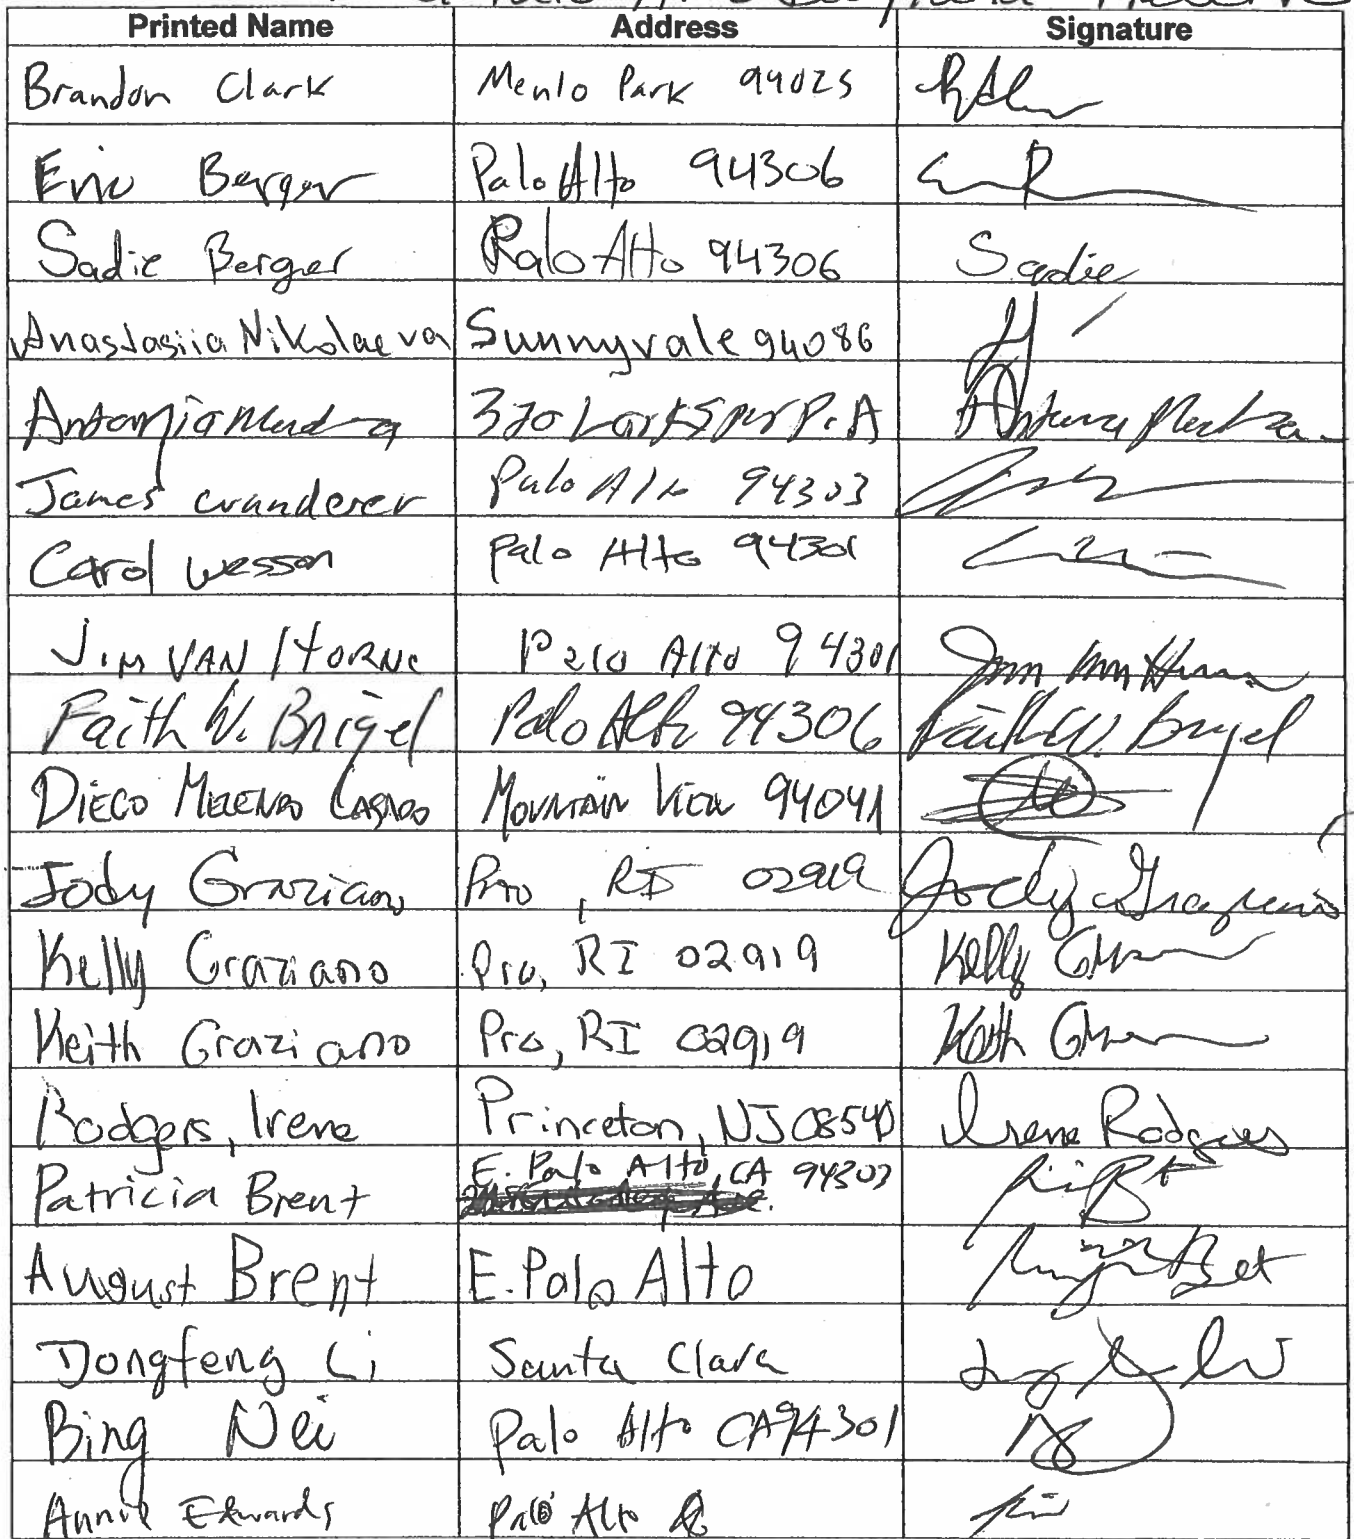 Printed Name Address Signature
Brandon Clark Menlo Park 94025
Eric Berger Palo Alto 94306
Sadie Berger Palo Alto 94306 Sadie
Anastasiia Nikolaeva Sunnyvale 94086
370 Larkspur P.A
James wanderer Palo Alto 94303
Carol wesson Palo Alto 94301
JIM VAN HORNE Palo Alto 94301
Faith W. Brigel Palo Alto 94306 Faith W. Brigel
DIEGO MELENDO CASADO MOUNTAIN VIEW 94041
Jody Graziano Pro, RI 02919 Jody Graziano
Kelly Graziano Pro, RI 02919 Kelly
Keith Graziano Pro, RI 02919 Keith
Rodgers, Irene Princeton, NJ 08540 Irene Rodgers
Patricia Brent E. Palo Alto, CA 94303
August Brent E. Palo Alto
Dongfeng Li Santa Clara
Bing Nei Palo Alto CA 94301
Annie Edwards Palo Alto